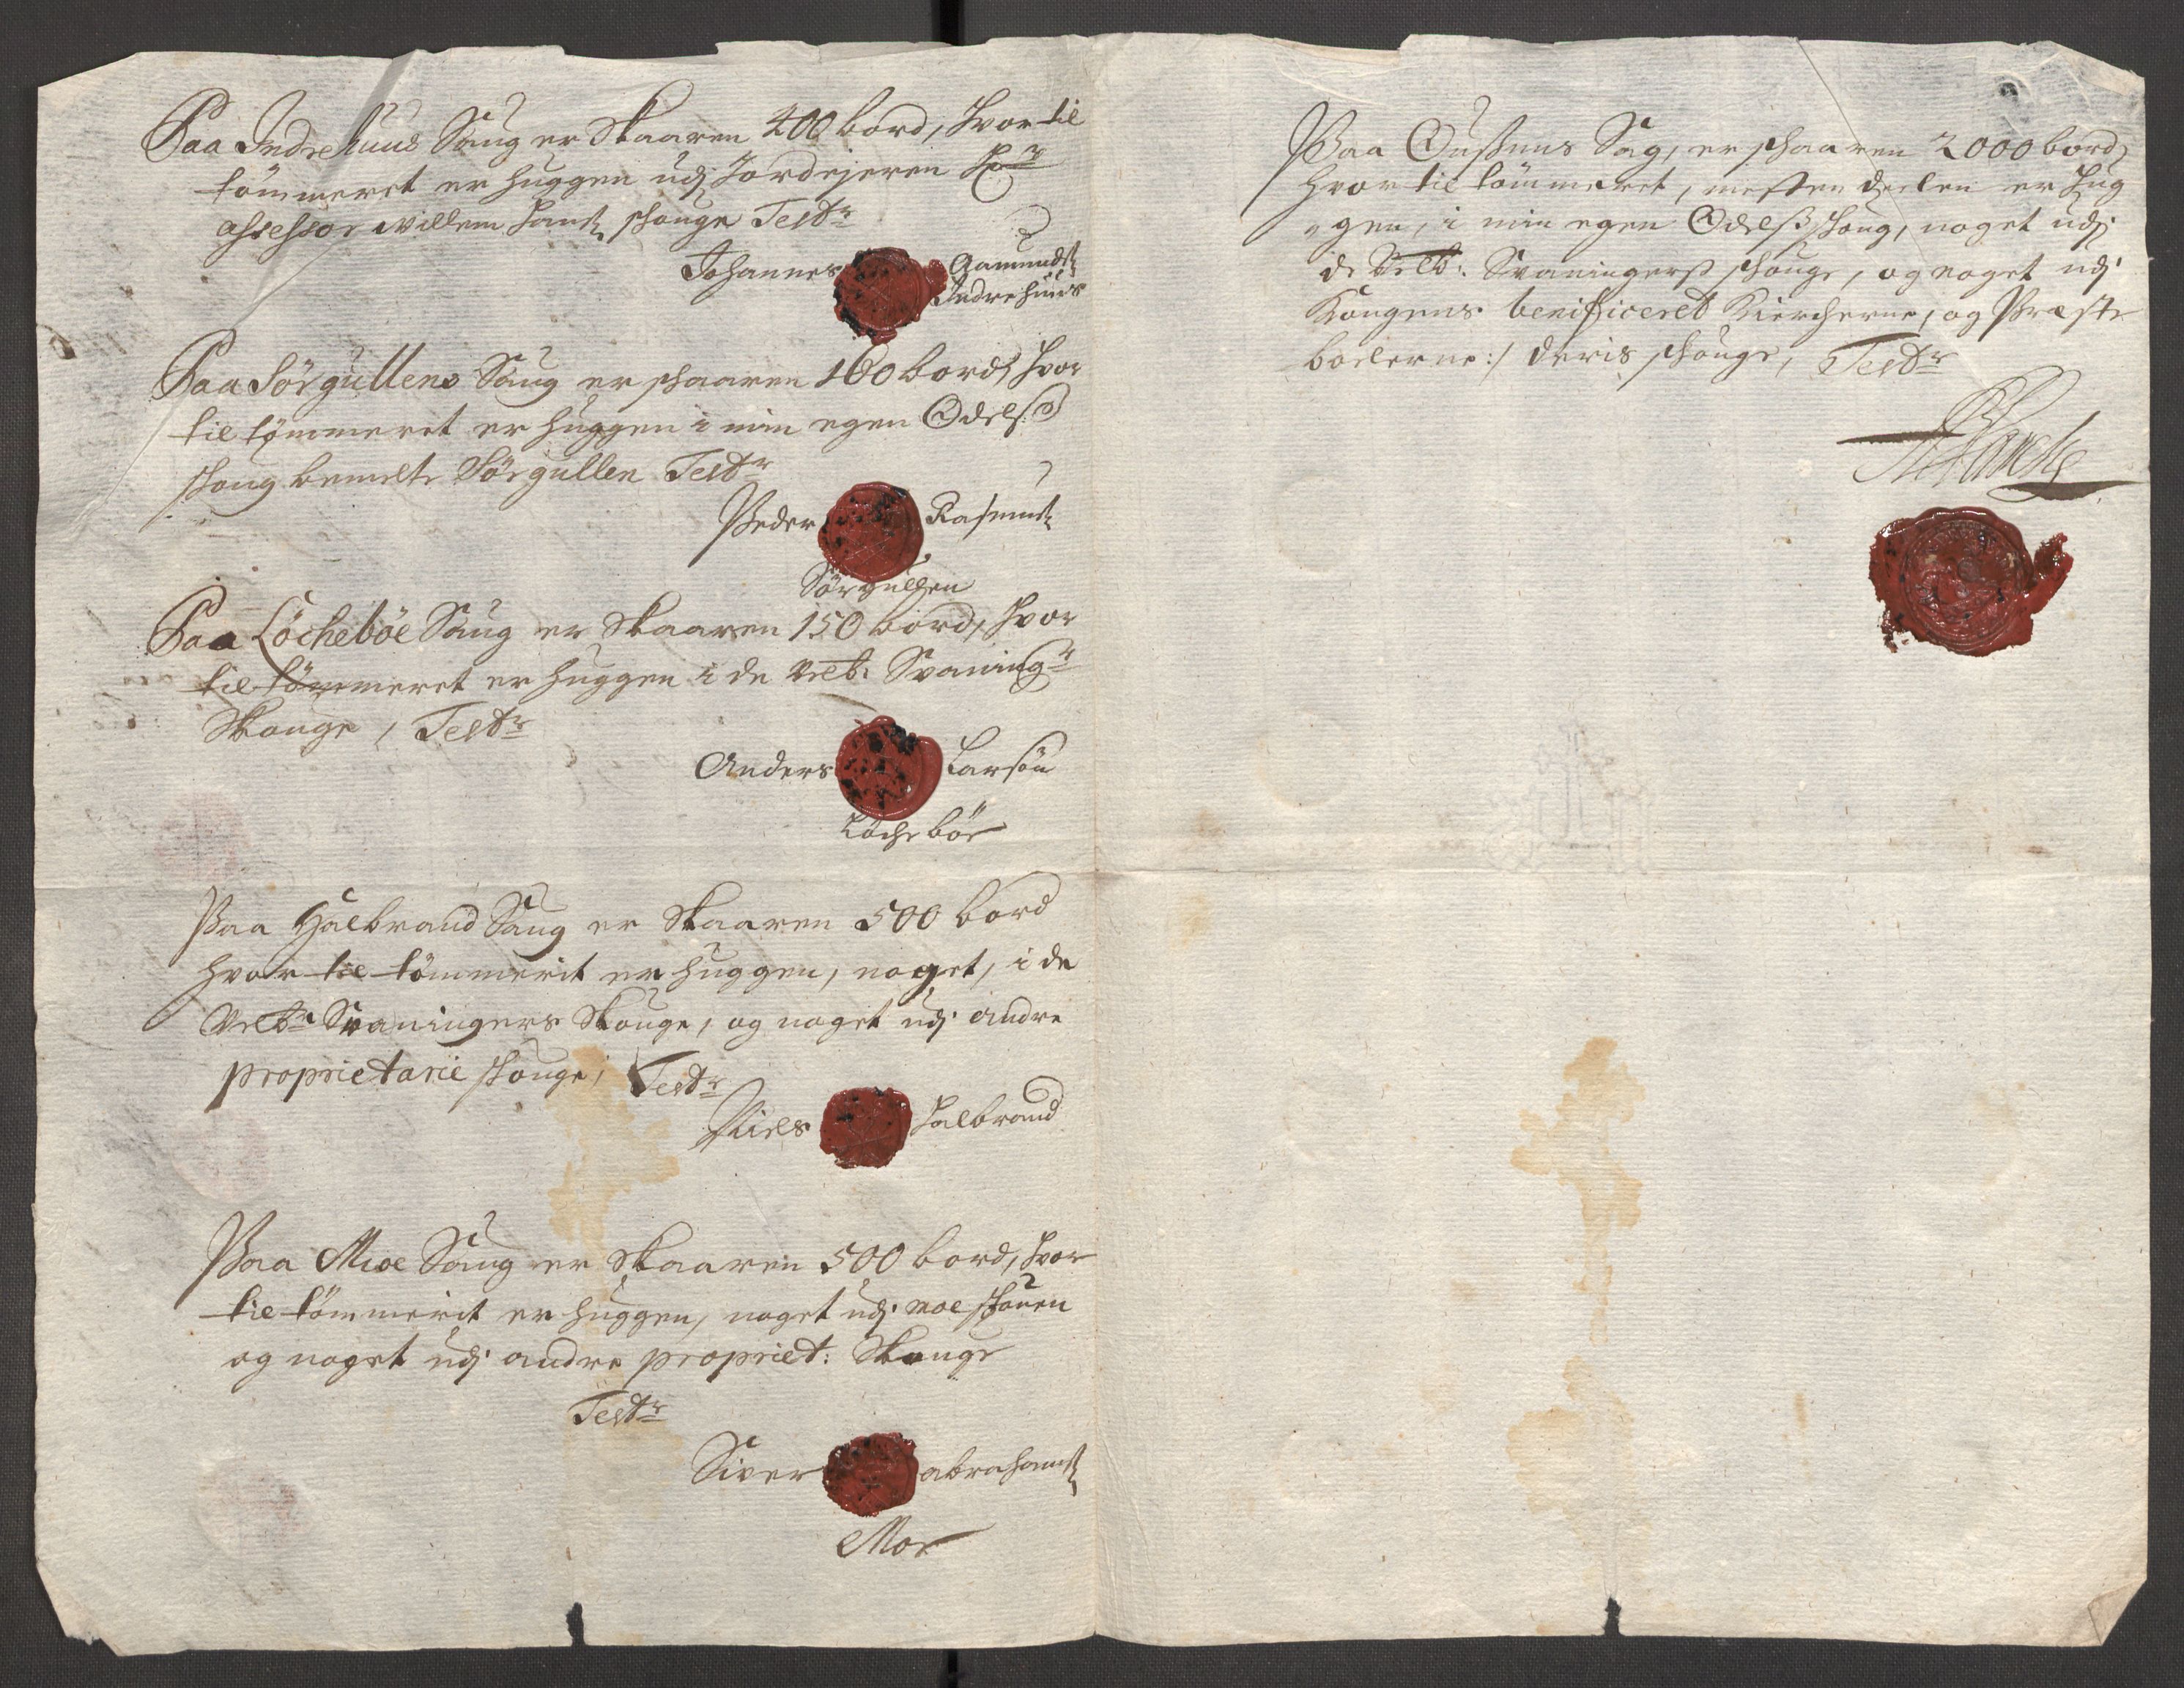 Paa Indrehuus Saug er Skaaren 400 bord, hvor til
tömmeret er huggen udj Jordejeren Hr
assessor willem Hans: skouge Test:r
Johannes Aamunds:
Indrehuus
Paa Sörgullens Saug er skaaren 160 bord, hvor
til tömmeret er huggen i min egen Odelß
skoug bemelte Sörgullen Test:r
Peder Rasmus:
Sörgullen
Paa Löcheböe Saug er Skaaren 150 bord, hvor
til tömmeret er huggen i de Velb: Svaning:r
Skouge, Test:r
Anders Larsön
Löcheböe
Paa Halbrand Saug er Skaaren 500 bord
hvor til tömmerit er huggen, noget, i de
Velb:r Svaningers Skouge, og noget udj andre
proprietarie skouge, Test:r
Niels Halbrand
Paa Moe Saug er Skaaren 500 bord, hvor
til tömmerit er huggen, noget udj moe skouen
og noget udj andre propriet: Skouge
Test:r
Siver abrahams:
Moe
Paa Sag, er skaaren 2000 bord,
hvor til tömmeret, mesten deelen er hug
gen, i min egen Odelß skoug, noget udj
de Velb: Svaningerß skouge, og noget udj
Kongens benificeret Kircherne, og Præste
boelerne:/ deris skouge, Test:r